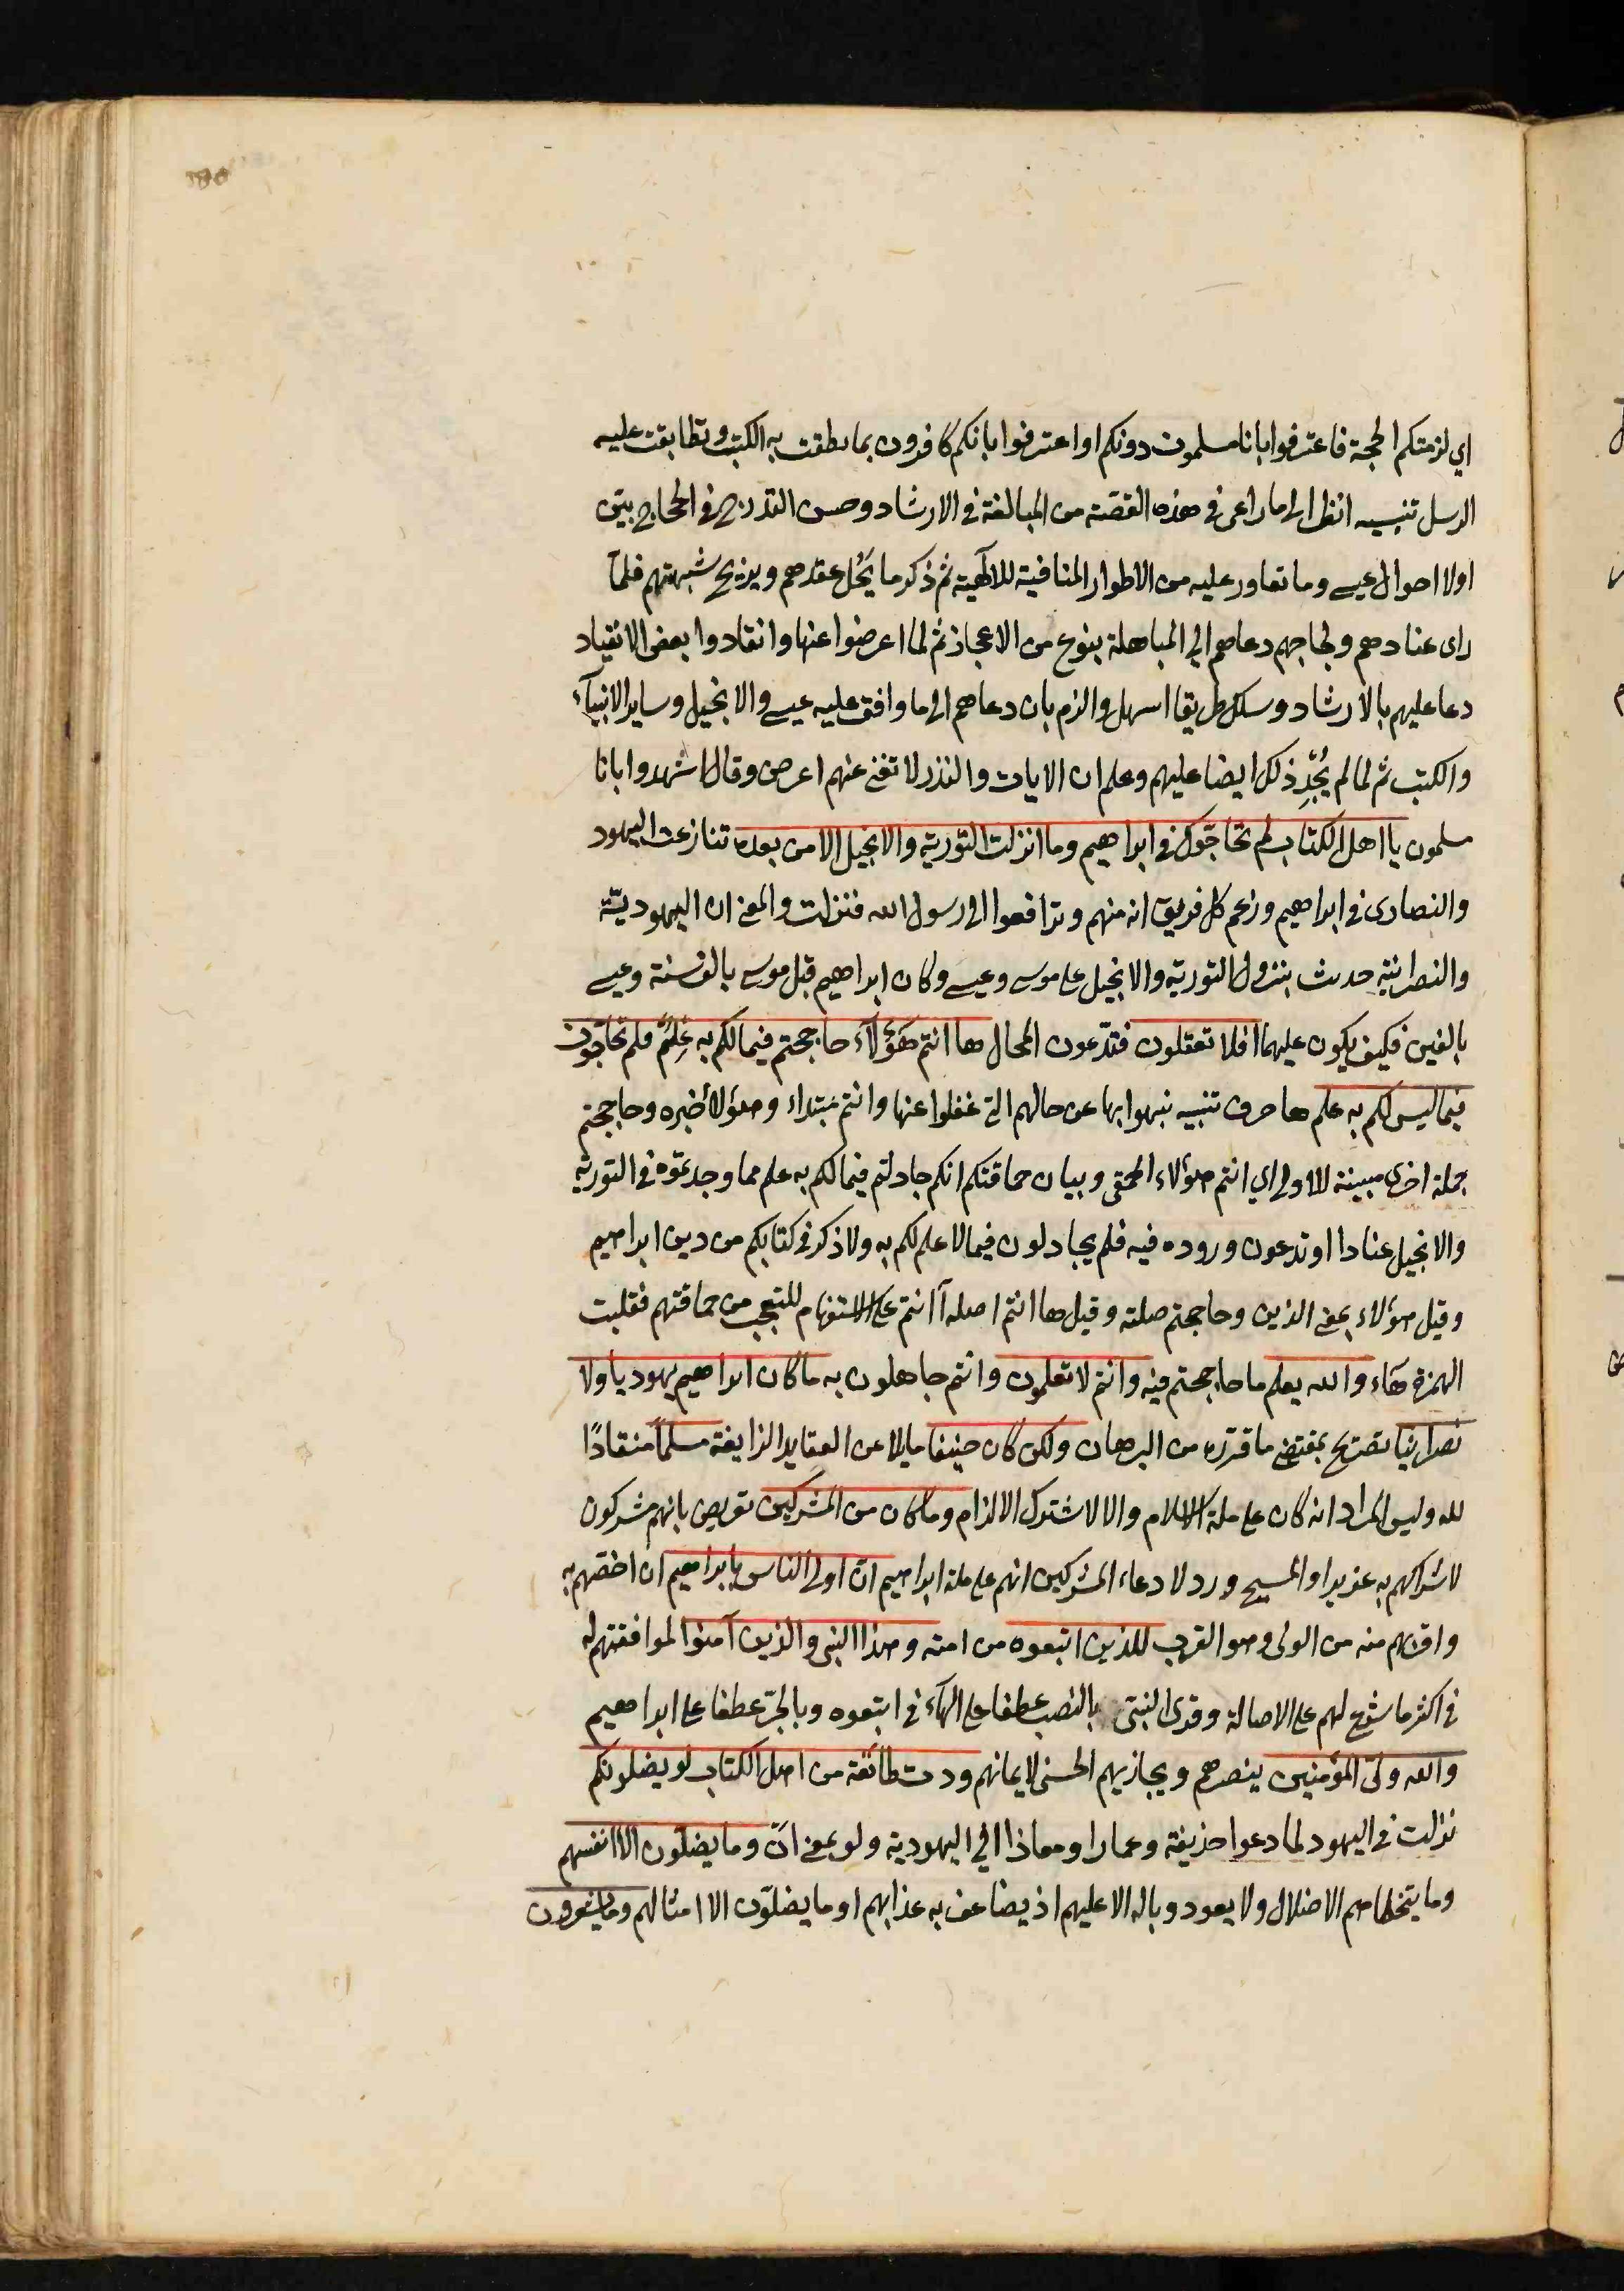 اي لزمتكم الحجة فاعترفوا بانا مسلمون دونكم او اعترفوا بانكم كافرون بما نطقت به الكتب وتطابقت عليه
الرسل تنبيه انظر الى ما راعى في هذه القصّة من المبالغة في الارشاد وحسن التدرج في الحجاج بيّن
اولا احوال عيسى وما تعاور عليه من الاطوار المنافية للالٓهية ثم ذكر ما يَحُل عقدهم ويزيح شبهتهم فلمّا
راى عنادهم ولجاجهم دعاهم الي المباهلة بنوع من الاعجاز ثم لما اعرضوا عنها وانقادوا بعض الانقياد
دعا عليهم بالارشاد وسلك طريقا اسهل والزم بان دعاهم الى ما وافق عليه عيسى والانجيل وساير الانبيآء
والكتب ثم لما لم يُجْدِ ذلك ايضا عليهم وعلم ان الايات والنذر لا تغني عنهم اعرض وقال اشهدوا بانا
مسلمون يا اهل الكتاب لم تحاجّون في ابراهيم وما انزلت التّورية والانجيل الا من بعده تنازعت اليهود
والنصارى في ابراهيم وزعم كل فريق انه منهم وترافعوا الى رسول الله فنزلت والمعنى ان اليهوديّة
والنصرانية حدثت بنزول التورية والانجيل على موسى وعيسى وكان ابراهيم قبل موسى بالف سنة وعيسى
بالفين فكيف يكون عليهما افلا تعقلون فتدّعون المحال ها انتم هَؤُلآء حاججتم فيما لكم به عِلمٌ فلم تحآجّون
فيما ليس لكم به علم ها حرف تنبيه نبهوا بها عن حالهم التي غفلوا عنها وانتم مبتداء وهؤلاء خبره وحاججتم
جملة اخرى مبينة للاولى اي انتم هؤلاء الحمقى وبيان حماقتكم انكم جادلتم فيما لكم به علم مما وجدتموه في التورية
والانجيل عنادا او تدعون وروده فيه فلم يجادلون فيما لا علم لكم به ولا ذكر في كتابكم من دين ابراهيم
وقيل هؤلاء بمعنى الذين وحاججتم صلته وقيل ها انتم اصله أ انتم على الاستفهام للتعجب من حماقتهم فقلبت
الهمزة هآء والله يعلم ما حاججتم فيه وانتم لا تعلمون وانتم جاهلون به ما كان ابراهيم يهوديا ولا
نصرانيا تصريح بمقتضى ما قرّره من البرهان ولكن كان حنيفا مايلا عن العقايد الزايفة مسلماً منقادًا
لله وليس المراد انه كان على ملة الاسلام والا لاشترك الالزام وما كان من المشركين تعريض بانهم مشركون
لاشراكهم به عزيرا والمسيح ورد لادعاء المشركين انهم على ملة ابراهيم انّ اولى الناس بابراهيم ان اخصّهم به
واقربهم منه من الولى وهو القرب للذين اتبعوه من امته وهذا النبي والذين آمنوا لموافقتهم له
في اكثر ما شرع لهم على الاصالة وقرئ النبيّ بالنصب عطفا على الهآء في اتبعوه وبالجرّ عطفا على ابراهيم
والله وليّ المؤمنين ينصرهم ويجازيهم الحسنى لايمانهم ودت طائفة من اهل الكتاب لو يضلونكم
نزلت في اليهود لما دعوا حذيفة وعمارا ومعاذا الي اليهودية ولو بمعنى انْ وما يضلّون الا انفسهم
وما يتخطاهم الاضلال ولا يعود وباله الا عليهم اذ يضاعف به عذابهم او ما يضلّون الا امثالهم وما يشعرون